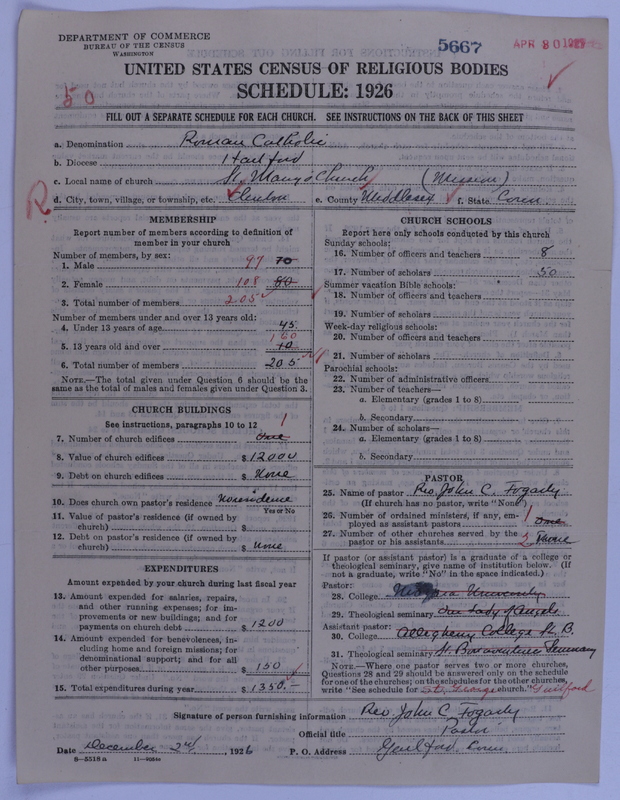 DEPARTMENT OF COMMERCE
BUREAU OF THE CENSUS
WASHINGTON
5667
APR 30 1927
UNITED STATES CENSUS OF RELIGIOUS BODIES
SCHEDULE: 1926
50
FILL OUT A SEPARATE SCHEDULE FOR EACH CHURCH. SEE INSTRUCTIONS ON THE BACK OF THIS SHEET
a. Denomination Roman Catholic
b. Diocese Hartford
c. Local name of church St. Mary's Church (Mission)
R d. City, town, village, or township, etc. Clinton e. County Middlesex f. State Conn
MEMBERSHIP
Report number of members according to definition of
member in your church
Number of members, by sex:
1. Male 97 70
2. Female 108 80
3. Total number of members 205
Number of members under and over 13 years old:
4. Under 13 years of age 45
5. 13 years old and over 160
6. Total number of members 205
NOTE.—The total given under Question 6 should be the
same as the total of males and females given under Question 3.
CHURCH BUILDINGS
See instructions, paragraphs 10 to 12 1
7. Number of church edifices one
8. Value of church edifices $ 12000
9. Debt on church edifices $ None
10. Does church own pastor's residence noresidence
Yes or No
11. Value of pastor's residence (if owned by
church) $
12. Debt on pastor's residence (if owned by
church) $ None
EXPENDITURES
Amount expended by your church during last fiscal year
13. Amount expended for salaries, repairs,
and other running expenses; for im-
provements or new buildings; and for
payments on church debt $ 1200
14. Amount expended for benevolences, in-
cluding home and foreign missions; for
denominational support; and for all
other purposes $ 150
15. Total expenditures during year $ 1350.
CHURCH SCHOOLS
Report here only schools conducted by this church
Sunday schools:
16. Number of officers and teachers 8
17. Number of scholars 50
Summer vacation Bible schools:
18. Number of officers and teachers
19. Number of scholars
Week-day religious schools:
20. Number of officers and teachers
21. Number of scholars
Parochial schools:
22. Number of administrative officers
23. Number of teachers—
a. Elementary (grades 1 to 8)
b. Secondary
24. Number of scholars—
a. Elementary (grades 1 to 8)
b. Secondary
PASTOR
25. Name of pastor Rev. John C. Fogarty
(If church has no pastor, write "None")
26. Number of ordained ministers, if any, em-
ployed as assistant pastors 1 one
27. Number of other churches served by the
pastor or his assistants 2
If pastor (or assistant pastor) is a graduate of a college or
theological seminary, give name of institution below. (If
not a graduate, write "No" in the space indicated.)
Pastor:
28. College Niagara University
29. Theological seminary Our Lady of Angels
Assistant pastor:
30. College Allegheny College St. B.
31. Theological seminary St. Bonaventure Seminary
NOTE.—Where one pastor serves two or more churches,
Questions 28 and 29 should be answered only on the schedule
for one of the churches; on the schedules for the other churches,
write "See schedule for St. George church." Guilford
Signature of person furnishing information Rev John C. Fogarty
Official title Pastor
Date December 24, 1926 P. O. Address Guilford, Conn.
8—5518 a